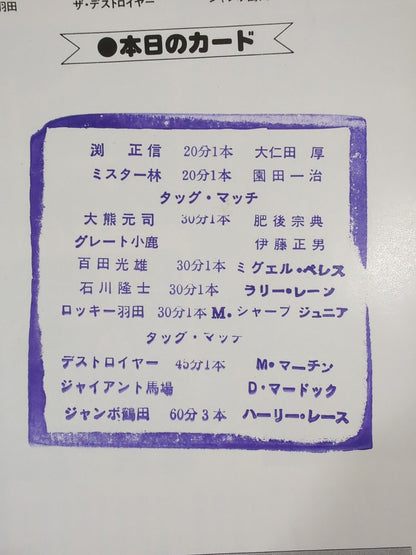 羽田
ザ・デストロイヤー
●本日のカード
渕 正信 20分1本 大仁田 厚
ミスター林 20分1本 園田一治
タッグ・マッチ
大熊元司 30分1本 肥後宗典
グレート小鹿 伊藤正男
百田光雄 30分1本 ミグエル・ペレス
石川隆士 30分1本 ラリー・レーン
ロッキー羽田 30分1本 M.シャープ ジュニア
タッグ・マッチ
デストロイヤー 45分1本 M・マーチン
ジャイアント馬場 D・マードック
ジャンボ鶴田 60分3本 ハーリー・レース